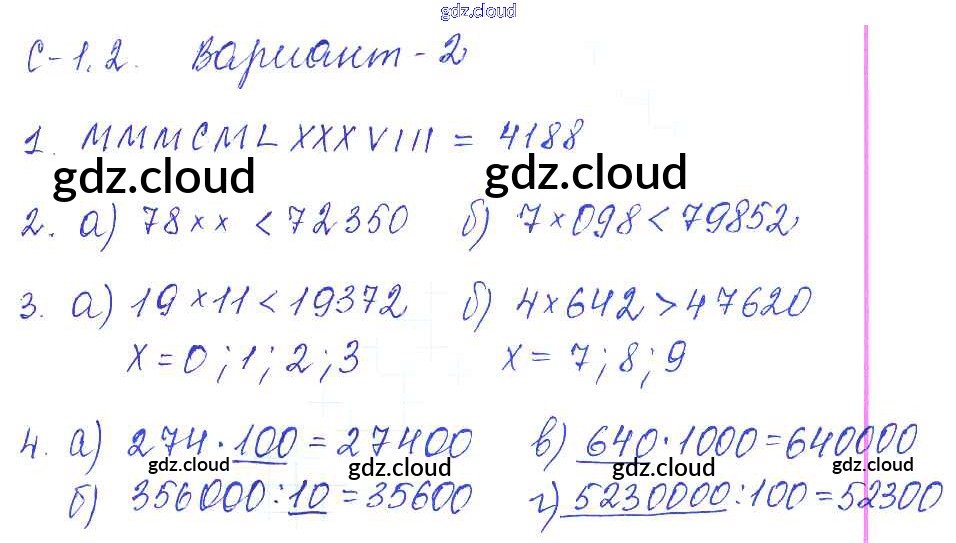 gdz.cloud
С-1.2. Вариант-2
1. MMMCMLXXXVIII = 4188
gdz.cloud gdz.cloud
2. а) 78xx < 72350 б) 7x098 < 79852
3. а) 19x11 < 19372 б) 4x642 > 47620
x = 0; 1; 2; 3 x = 7; 8; 9
4. а) 274 · 100 = 27400 в) 640 · 1000 = 640000
gdz.cloud gdz.cloud gdz.cloud gdz.cloud
б) 356000 : 10 = 35600 г) 5230000 : 100 = 52300